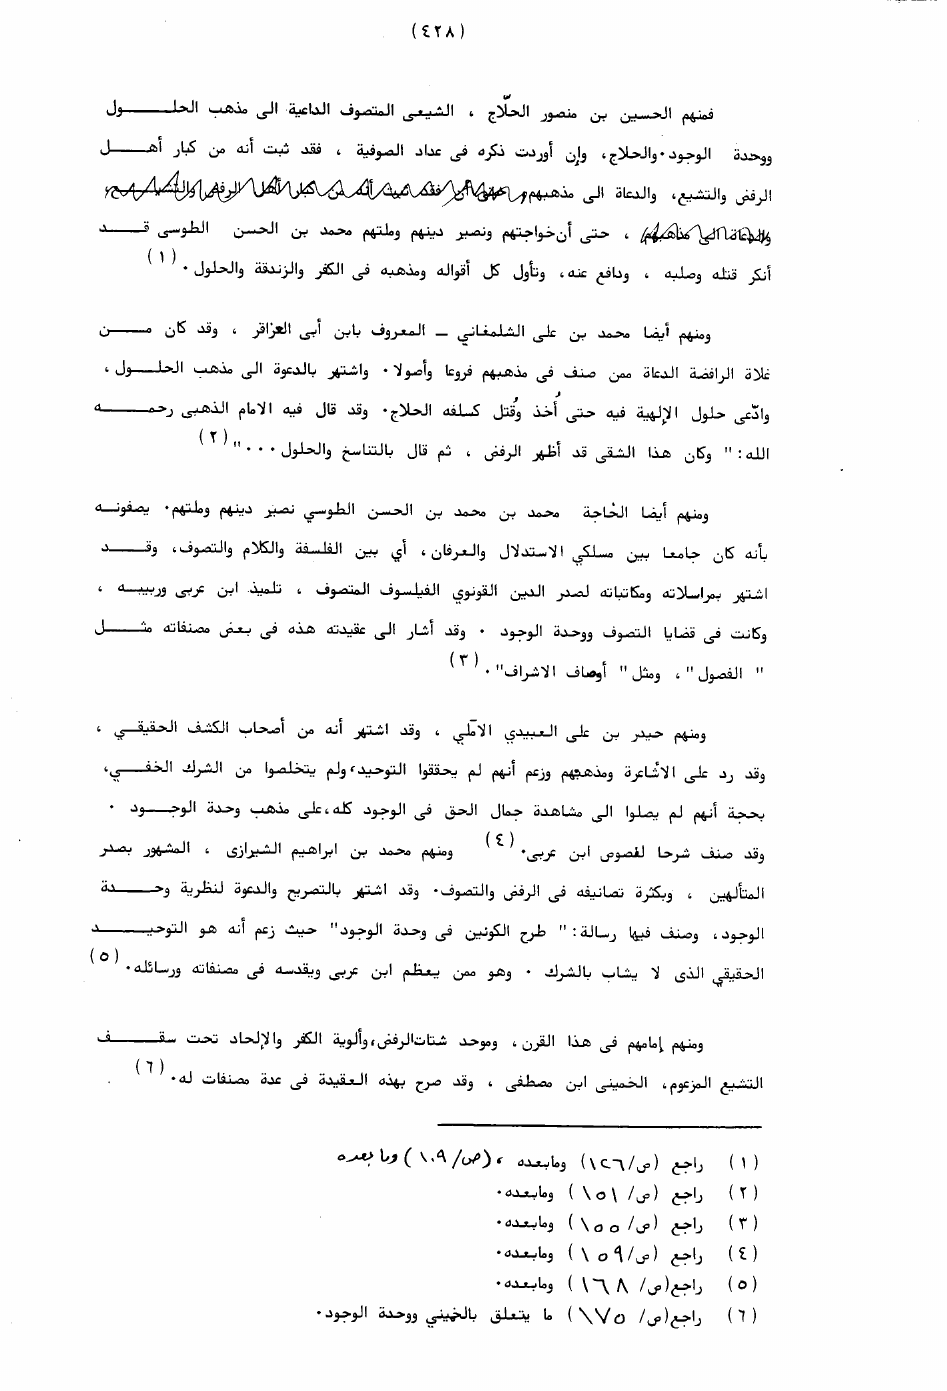 (٤٢٨)
فمنهم الحسين بن منصور الحلّاج ، الشيعى المتصوف الداعية الى مذهب الحلـــول
ووحدة الوجود٠ والحلاج، وإن أوردت ذكره فى عداد الصوفية ، فقد ثبت أنه من كبار أهـــل
الرفض والتشيع، والدعاة الى مذهبهم
، حتى أن خواجتهم ونصير دينهم وملتهم محمد بن الحسن الطوسى قـــد
أنكر قتله وصلبه ، ودافع عنه، وتأول كل أقواله ومذهبه فى الكفر والزندقة والحلول ٠ (١)
ومنهم أيضا محمد بن على الشلمغاني ــ المعروف بابن أبى العزاقر ، وقد كان مـــن
غلاة الرافضة الدعاة ممن صنف فى مذهبهم فروعا وأصولا٠ واشتهر بالدعوة الى مذهب الحلـــول ،
وادّعى حلول الإلهية فيه حتى أُخذ وقُتل كسلفه الحلاج٠ وقد قال فيه الامام الذهبى رحمـــه
الله: " وكان هذا الشقى قد أظهر الرفض ، ثم قال بالتناسخ والحلول ٠٠٠" (٢)
ومنهم أيضا الخاجة محمد بن محمد بن الحسن الطوسي نصير دينهم وملتهم٠ يصفونـــه
بأنه كان جامعا بين مسلكي الاستدلال والعرفان، أي بين الفلسفة والكلام والتصوف، وقـــد
اشتهر بمراسلاته ومكاتباته لصدر الدين القونوي الفيلسوف المتصوف ، تلميذ ابن عربى وربيبـــه ،
وكانت فى قضايا التصوف ووحدة الوجود ٠ وقد أشار الى عقيدته هذه فى بعض مصنفاته مثـــل
" الفصول" ، ومثل " أوصاف الاشراف" ٠ (٣)
ومنهم حيدر بن على العبيدي الآملي ، وقد اشتهر أنه من أصحاب الكشف الحقيقـــي ،
وقد رد على الأشاعرة ومذهبهم وزعم أنهم لم يحققوا التوحيد، ولم يتخلصوا من الشرك الخفـــي،
بحجة أنهم لم يصلوا الى مشاهدة جمال الحق فى الوجود كله، على مذهب وحدة الوجـــود ٠
وقد صنف شرحا لفصوص ابن عربى٠ (٤) ومنهم محمد بن ابراهيم الشيرازى ، المشهور بصدر
المتألهين ، وبكثرة تصانيفه فى الرفض والتصوف٠ وقد اشتهر بالتصريح والدعوة لنظرية وحـــدة
الوجود، وصنف فيها رسالة: " طرح الكونين فى وحدة الوجود" حيث زعم أنه هو التوحيـــد
الحقيقي الذى لا يشاب بالشرك ٠ وهو ممن يعظم ابن عربى ويقدسه فى مصنفاته ورسائله٠ (٥)
ومنهم إمامهم فى هذا القرن، وموحد شتات الرفض، وألوية الكفر والإلحاد تحت سقـــف
التشيع المزعوم، الخمينى ابن مصطفى ، وقد صرح بهذه العقيدة فى عدة مصنفات له٠ (٦)
(١) راجع (ص/١٢٦) ومابعده ، (ص/١٠٩) وما بعده
(٢) راجع (ص/ ١٥١) ومابعده٠
(٣) راجع (ص/ ١٥٥) ومابعده٠
(٤) راجع (ص/ ١٥٩) ومابعده٠
(٥) راجع(ص/ ١٦٨) ومابعده٠
(٦) راجع(ص/ ١٧٥) ما يتعلق بالخميني ووحدة الوجود٠